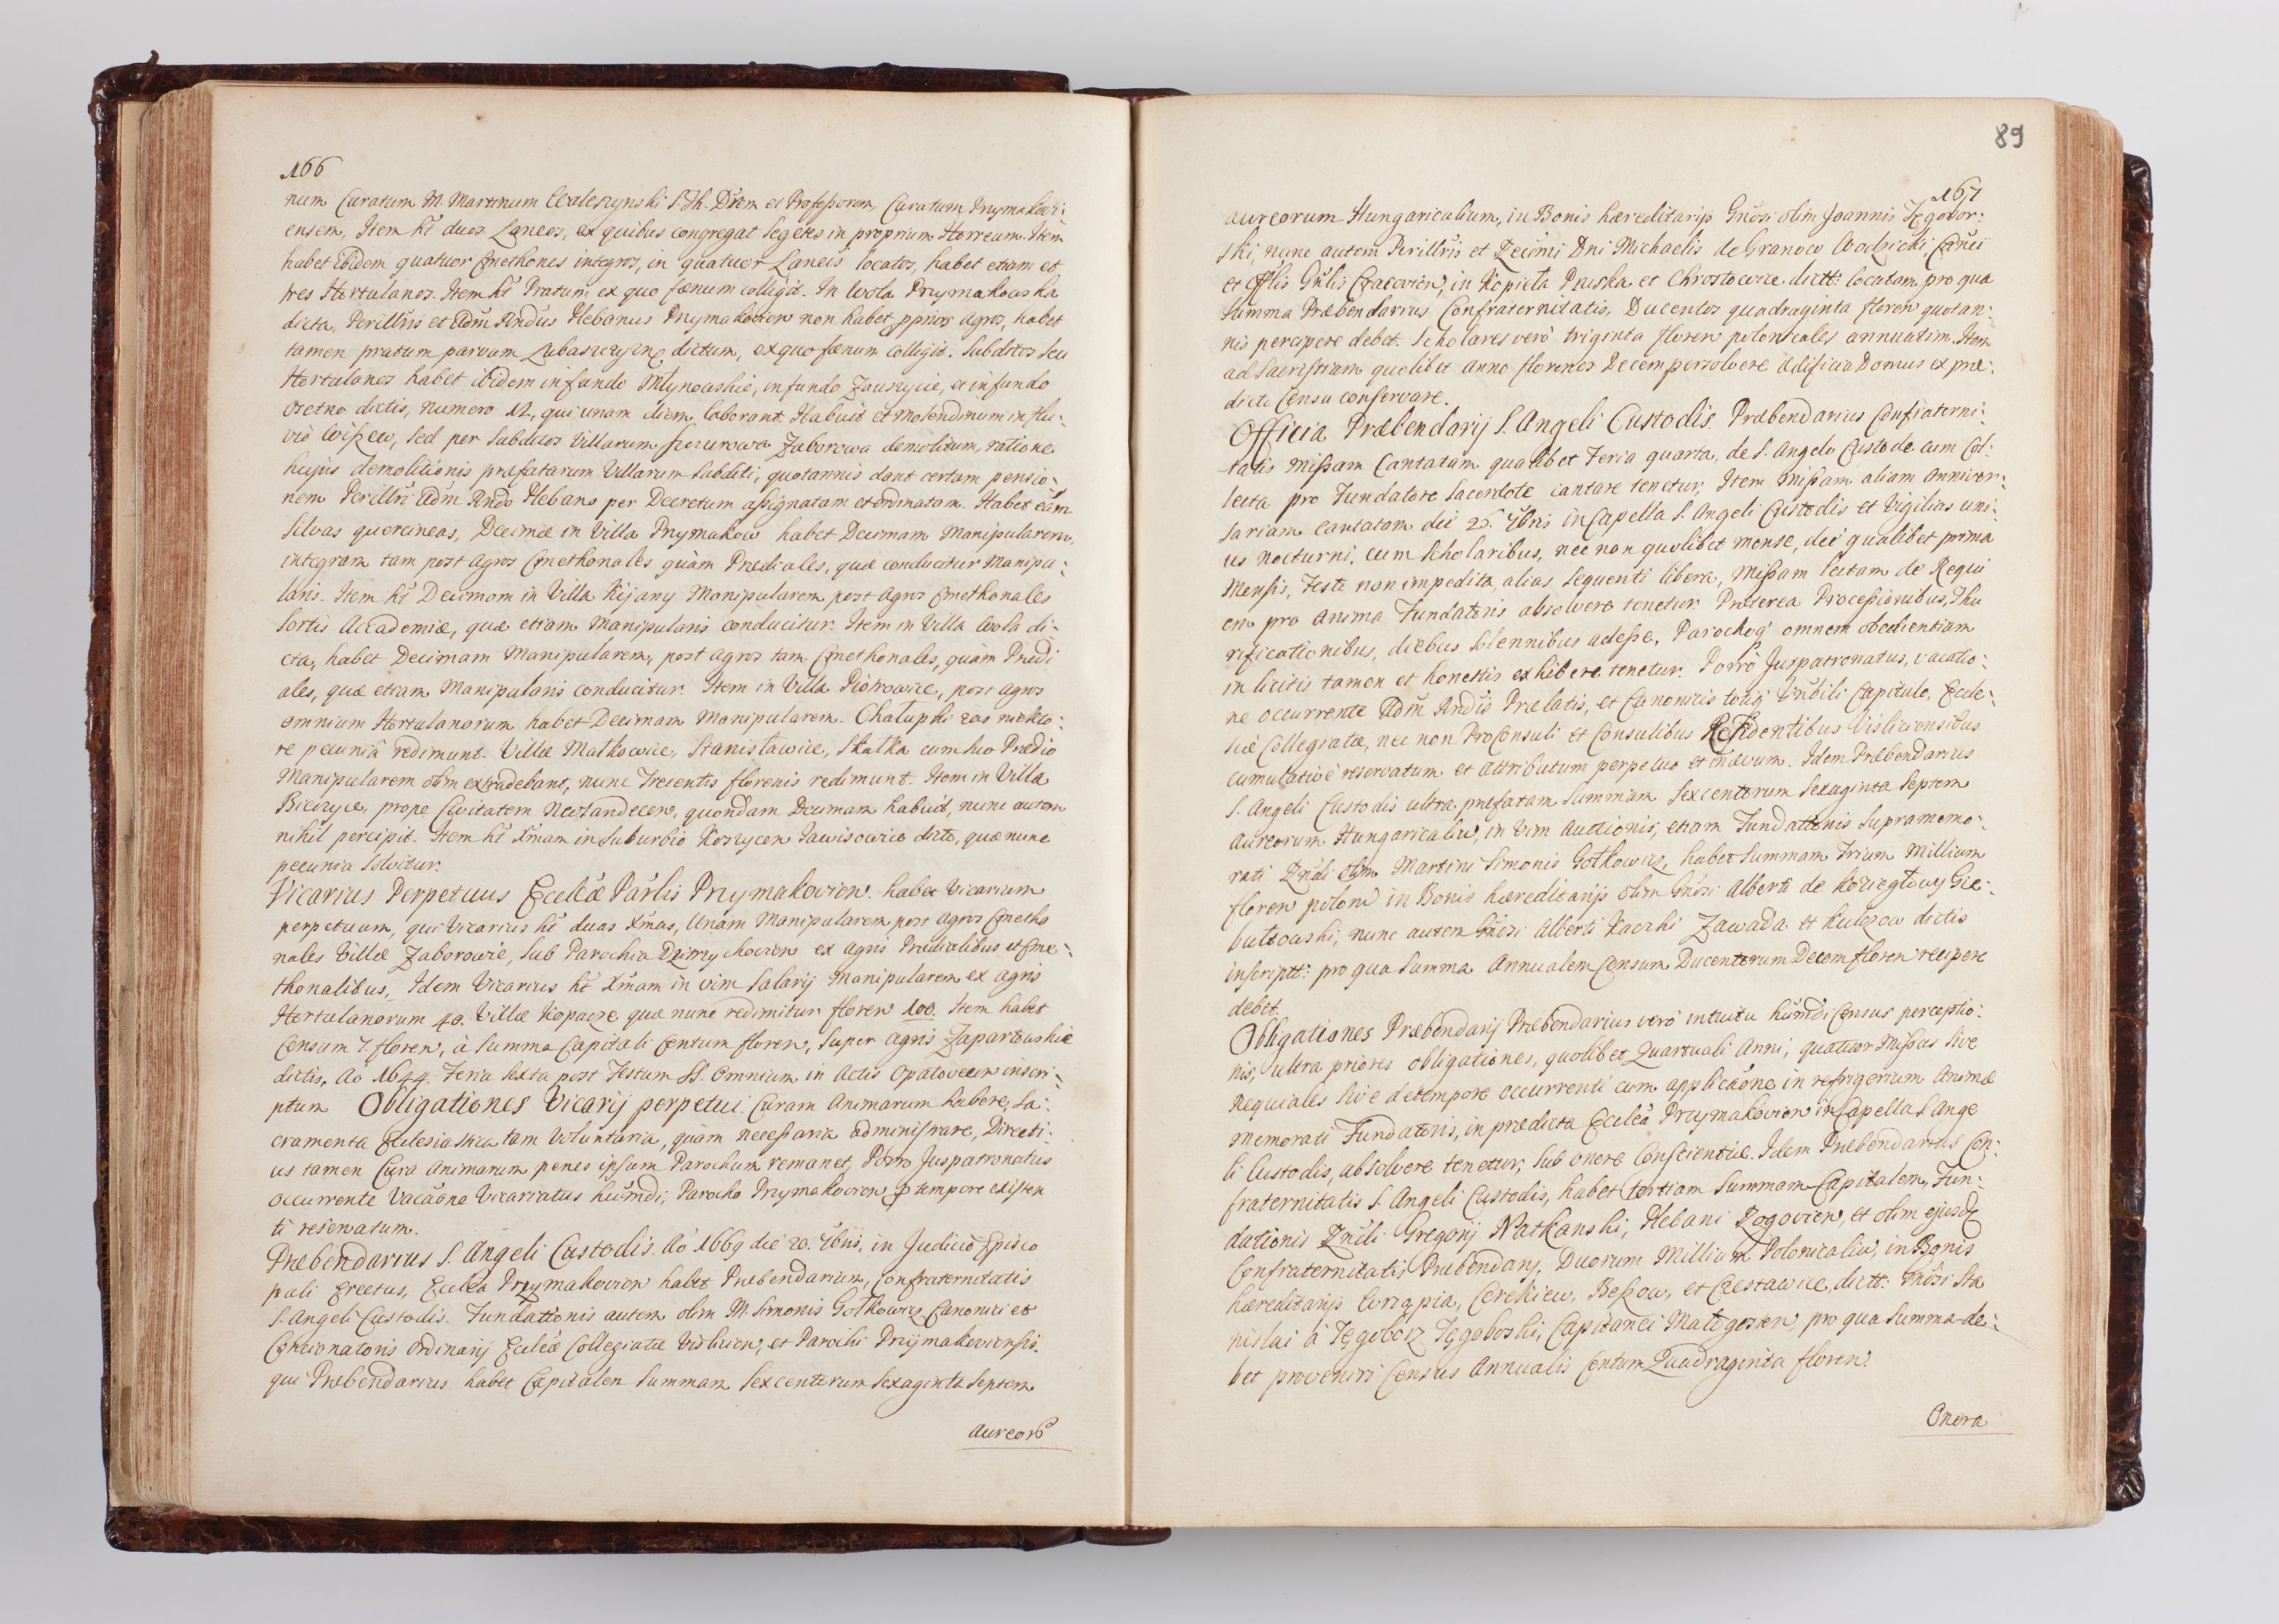 166
num Curatum M. Martinum Waleszynski S. Th. Drem et Professorem, Curatum Przymakovi:
ensem, Item ht duos Laneos, ex quibus congregat segetes in proprium Horreum. Item
habet ibidem quatuor Cmethones integros, in quatuor Laneis locatos, habet etiam et
tres Hortulanos. Item ht Pratum ex quo fœnum colligit. In Wola Przymakowska
dicta, Perillris et Adm Rndus Plebanus Przymakovien non habet pprios agros, habet
tamen pratum parvum Lubaszczyzną dictum, ex quo fœnum colligit. Subditos seu
Hortulanos habet ibidem in fundo Młynowskie, in fundo Zauszycie, et in fundo
Oretno dictis, numero 12, qui unam diem laborant. Habuit et Molendinum in flu:
vio Wissew, sed per subditos Villarum Szczurowa Zaborowa demolitum, ratione
hujus demolitionis præfatarum Villarum subditi, quotannis dant certam pensio:
nem Perillri Adm Rndo Plebano per Decretum assignatam et ordinatam. Habet eam
silvas quercineas, Decimæ in Villa Przymakow habet Decimam Manipularem,
integram tam post agros Cmethonales quàm Prædiales, quæ conducitur Manipu:
laris. Item ht Decimam in Villa Kijany Manipularem post agros Cmethonales
sortis Accademiæ, quæ etiam Manipularis conducitur. Item in Villa Wola di:
cta, habet Decimam Manipularem, post agros tam Cmethonales, quàm Prædi
ales, quæ etiam Manipularis conducitur. Item in Villa Piotrowice, post agros
omnium Hortulanorum habet Decimam Manipularem. Chałupki zas niekto:
re pecuniâ redimunt. Villæ Matkowice, Stanisławice, Skałka cum suo Prædio
Manipularem olim extradebant, nunc Trecentis florenis redimunt. Item in Villa
Biczyce prope Civitatem Neosandecen, quondam Decimam habuit, nunc autem
nihil percipit. Item ht Xmam in suburbio Koszycen Jawisowie dicto, quæ nunc
pecunia solvitur.
Vicarius Perpetuus Ecclæ Parlis Przymakovien. habet Vicarium
perpetuum, qui Vicarius ht duas Xmas, Unam Manipularem post agros Cmetho
nales Villæ Zaborowie, sub Parochia Dzimychovien ex agris Prædialibus et Cme:
thonalibus, Idem Vicarius ht Xmam in vim salarij Manipularem ex agris
Hortulanorum 40. Villæ Kopacze quæ nunc redimitur floren 100. Item habet
Censum 7. floren, à summa Capitali Centum floren, super agris Zapartowskie
dictis, Ao 1644. Feria sexta post Festum SS. Omnium in Actis Opatovecen inscri:
ptum Obligationes Vicarij perpetui. Curam Animarum habere, Sa:
cramenta Ecclesiastica tam voluntaria, quàm necessaria administrare, Directi:
us tamen Cura animarum penes ipsum Parochum remanet, Porro Juspatronatus
occurrente Vacãone Vicarriatus humdi, Parocho Przymakovien p tempore existen
ti reservatum.
Præbendarius S. Angeli Custodis. Ao 1669 die 20. 7bris, in Judicio Episco
pali Erectus, Ecclea Przymakovien habet Præbendarium, Confraternitatis
S. Angeli Custodis. Fundationis autem olim M. Simonis Gołkowicz Canonici et
Concionatoris Ordinarij Ecclæ Collegiatæ Vislicien, et Parochi Przymakoviensis.
qui Præbendarius habet Capitalem Summam Sexcentorum Sexaginta Septem
Aureoru
89
167
aureorum Hungaricalium, in Bonis hæreditarijs Gnosi olim Joannis Tęgobor:
ski, nunc autem Perillris et Rdmi Dni Michaelis de Granow Wodzicki, Canci
et Offlis Gnlis Cracovien, in Kopieta Pruska et Chrostowice dictt: locatam pro qua
Summa Præbendarius Confraternitatis, Ducentos quadraginta floren quotan:
nis percipere debet. Scholares verò triginta floren polonicales annuatim. Item
ad Sacristiam quolibet anno florenos Decem persolvere ædificia Domus ex præ:
dicto Censu conservare.
Officia Præbendarij S. Angeli Custodis. Præbendarius Confraterni:
tatis Missam Cantatam qualibet Feria quarta, de S. Angelo Custode cum Col:
lecta pro Fundatore Sacerdote cantare tenetur, Item Missam aliam anniver:
sariam cantatam die 26. 7bris in Capella S. Angeli Custodis et Vigilias uni:
us nocturni, cum Scholaribus, nec non quolibet mense, die qualibet prima
Mensis, Festo non impedita alias sequenti libera, Missam lectam de Requi
em pro anima Fundatoris absolvere tenetur. Præterea Processionibus, Thu
rificationibus, diebus solennibus adesse, Parochoq' omnem obedientiam
in licitis tamen et honestis exhibere tenetur. Porrò Juspatronatus, vacatio:
ne occurrente Adm Rndis Prælatis, et Canonicis totiq' Vnbili Capitulo, Eccle:
siæ Collegiatæ, nec non ProConsuli et Consulibus Residentibus Visliciensibus
cumulativè reservatum et attributum perpetuo et in ævum. Idem Præbendarius
S. Angeli Custodis ultra præfatam Summam Sexcentorum Sexaginta Septem
Aureorum Hungaricaliu, in vim auctionis, etiam Fundationis supramemo:
rati Rndi olim Martini Simonis Gołkowicz, habet Summam Trium Millium
floren polon in Bonis hæreditarijs olim Gnosi Alberti de Kozieglowy Gie:
bułtowski, nunc autem Gnosi Alberti Kacski Zawada et Kulzow dictis
inscriptt: pro qua Summa Annualem Censum Ducentorum Decem floren recipere
debet.
Obligationes Præbendarij Præbendarius verò intuitu humdi Census perceptio:
nis, ultra priores obligationes, quolibet Quartuali Anni, quatuor Missas sive
Requiales sive de tempore occurrenti cum applicãone in refrigerium Animæ
memorati Fundatoris, in prædicta Ecclea Przymakovien in Capella S. Ange
li Custodis, absolvere tenetur, sub onere Conscientiæ. Idem Præbendarius Con:
fraternitatis S. Angeli Custodis, habet tertiam Summam Capitalem, Fun:
dationis Rndi Gregorij Natkanski, Plebani Rogovien, et olim ejusd
Confraternitatis Præbendarij, Duorum Millium Polonicaliu, in Bonis
hæreditarijs Uciąpia, Cerekiew, Beszow, et Czestawice, dictt: Gnosi Sta
nislai à Tęgoborz Tęgoboski, Capitanei Małogosten, pro qua Summa de:
bet provenire Census Annualis Centum Quadraginta floren.
Onera